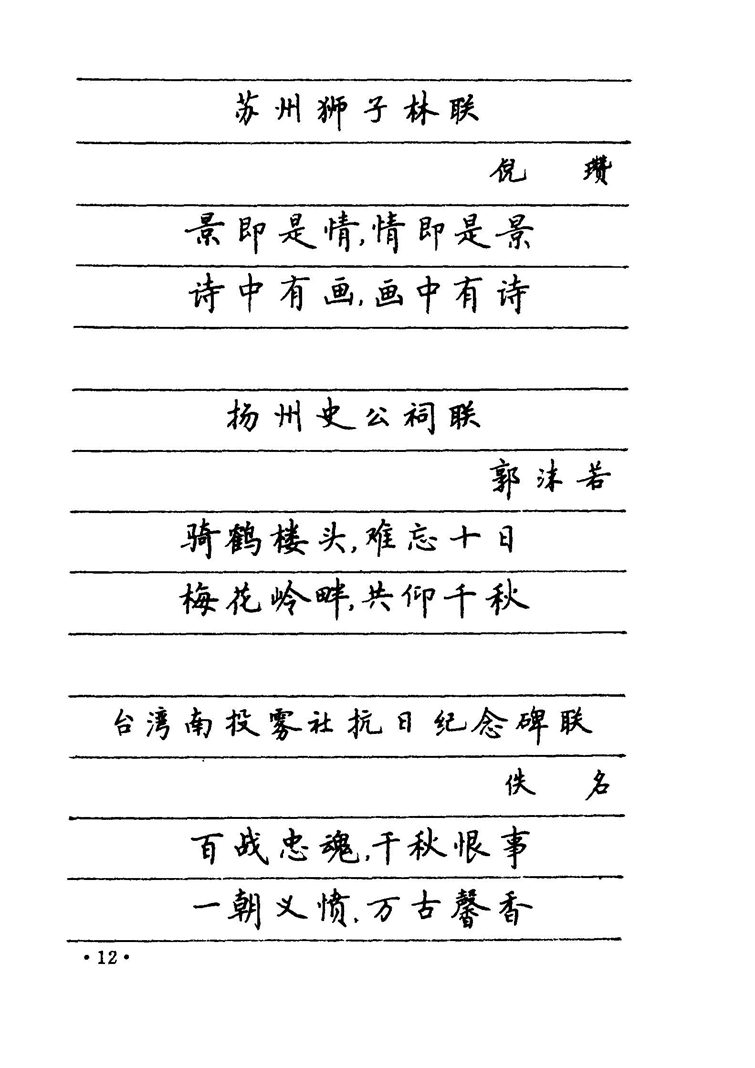 苏州狮子林联
倪 瓒
景即是情,情即是景
诗中有画,画中有诗
扬州史公祠联
郭沫若
骑鹤楼头,难忘十日
梅花岭畔,共仰千秋
台湾南投雾社抗日纪念碑联
佚 名
百战忠魂,千秋恨事
一朝义愤,万古馨香
·12·